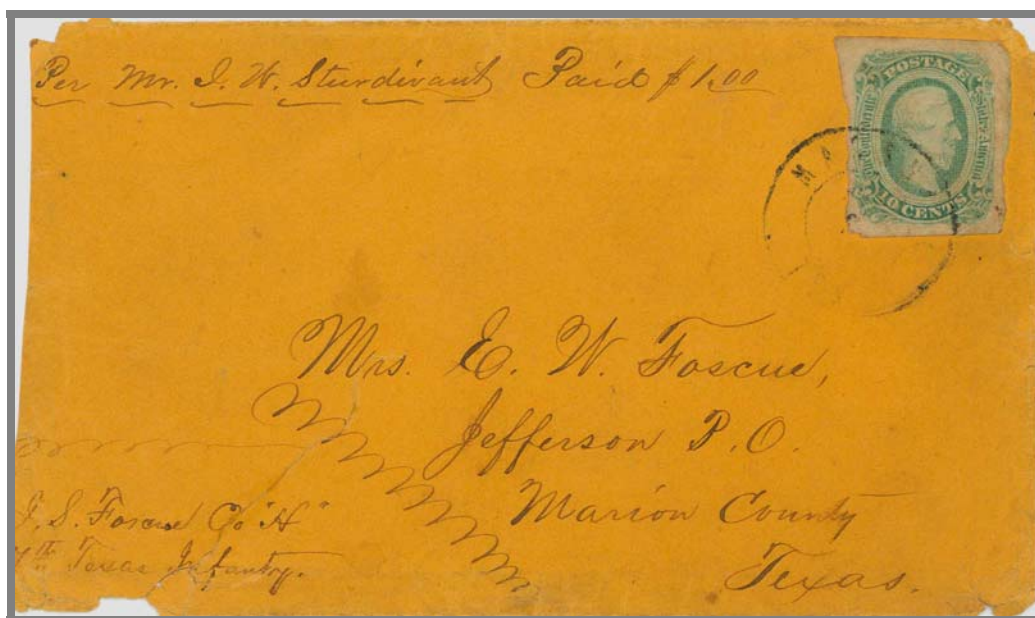 Per Mr. I. W. Sturdivant Paid $1.00
POSTAGE
The Confederate States America
10 CENTS
Mrs. E. W. Foscue,
Jefferson P.O.
Marion County
Texas.
J. S. Foscue Co "H"
7th Texas Infantry.